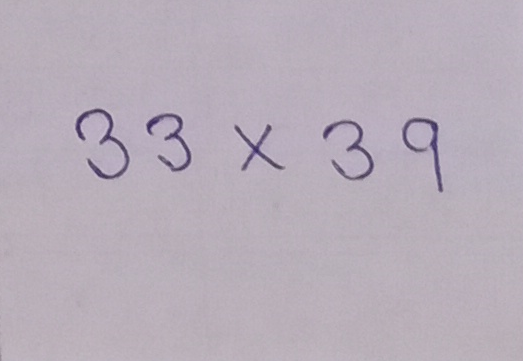 33 × 39